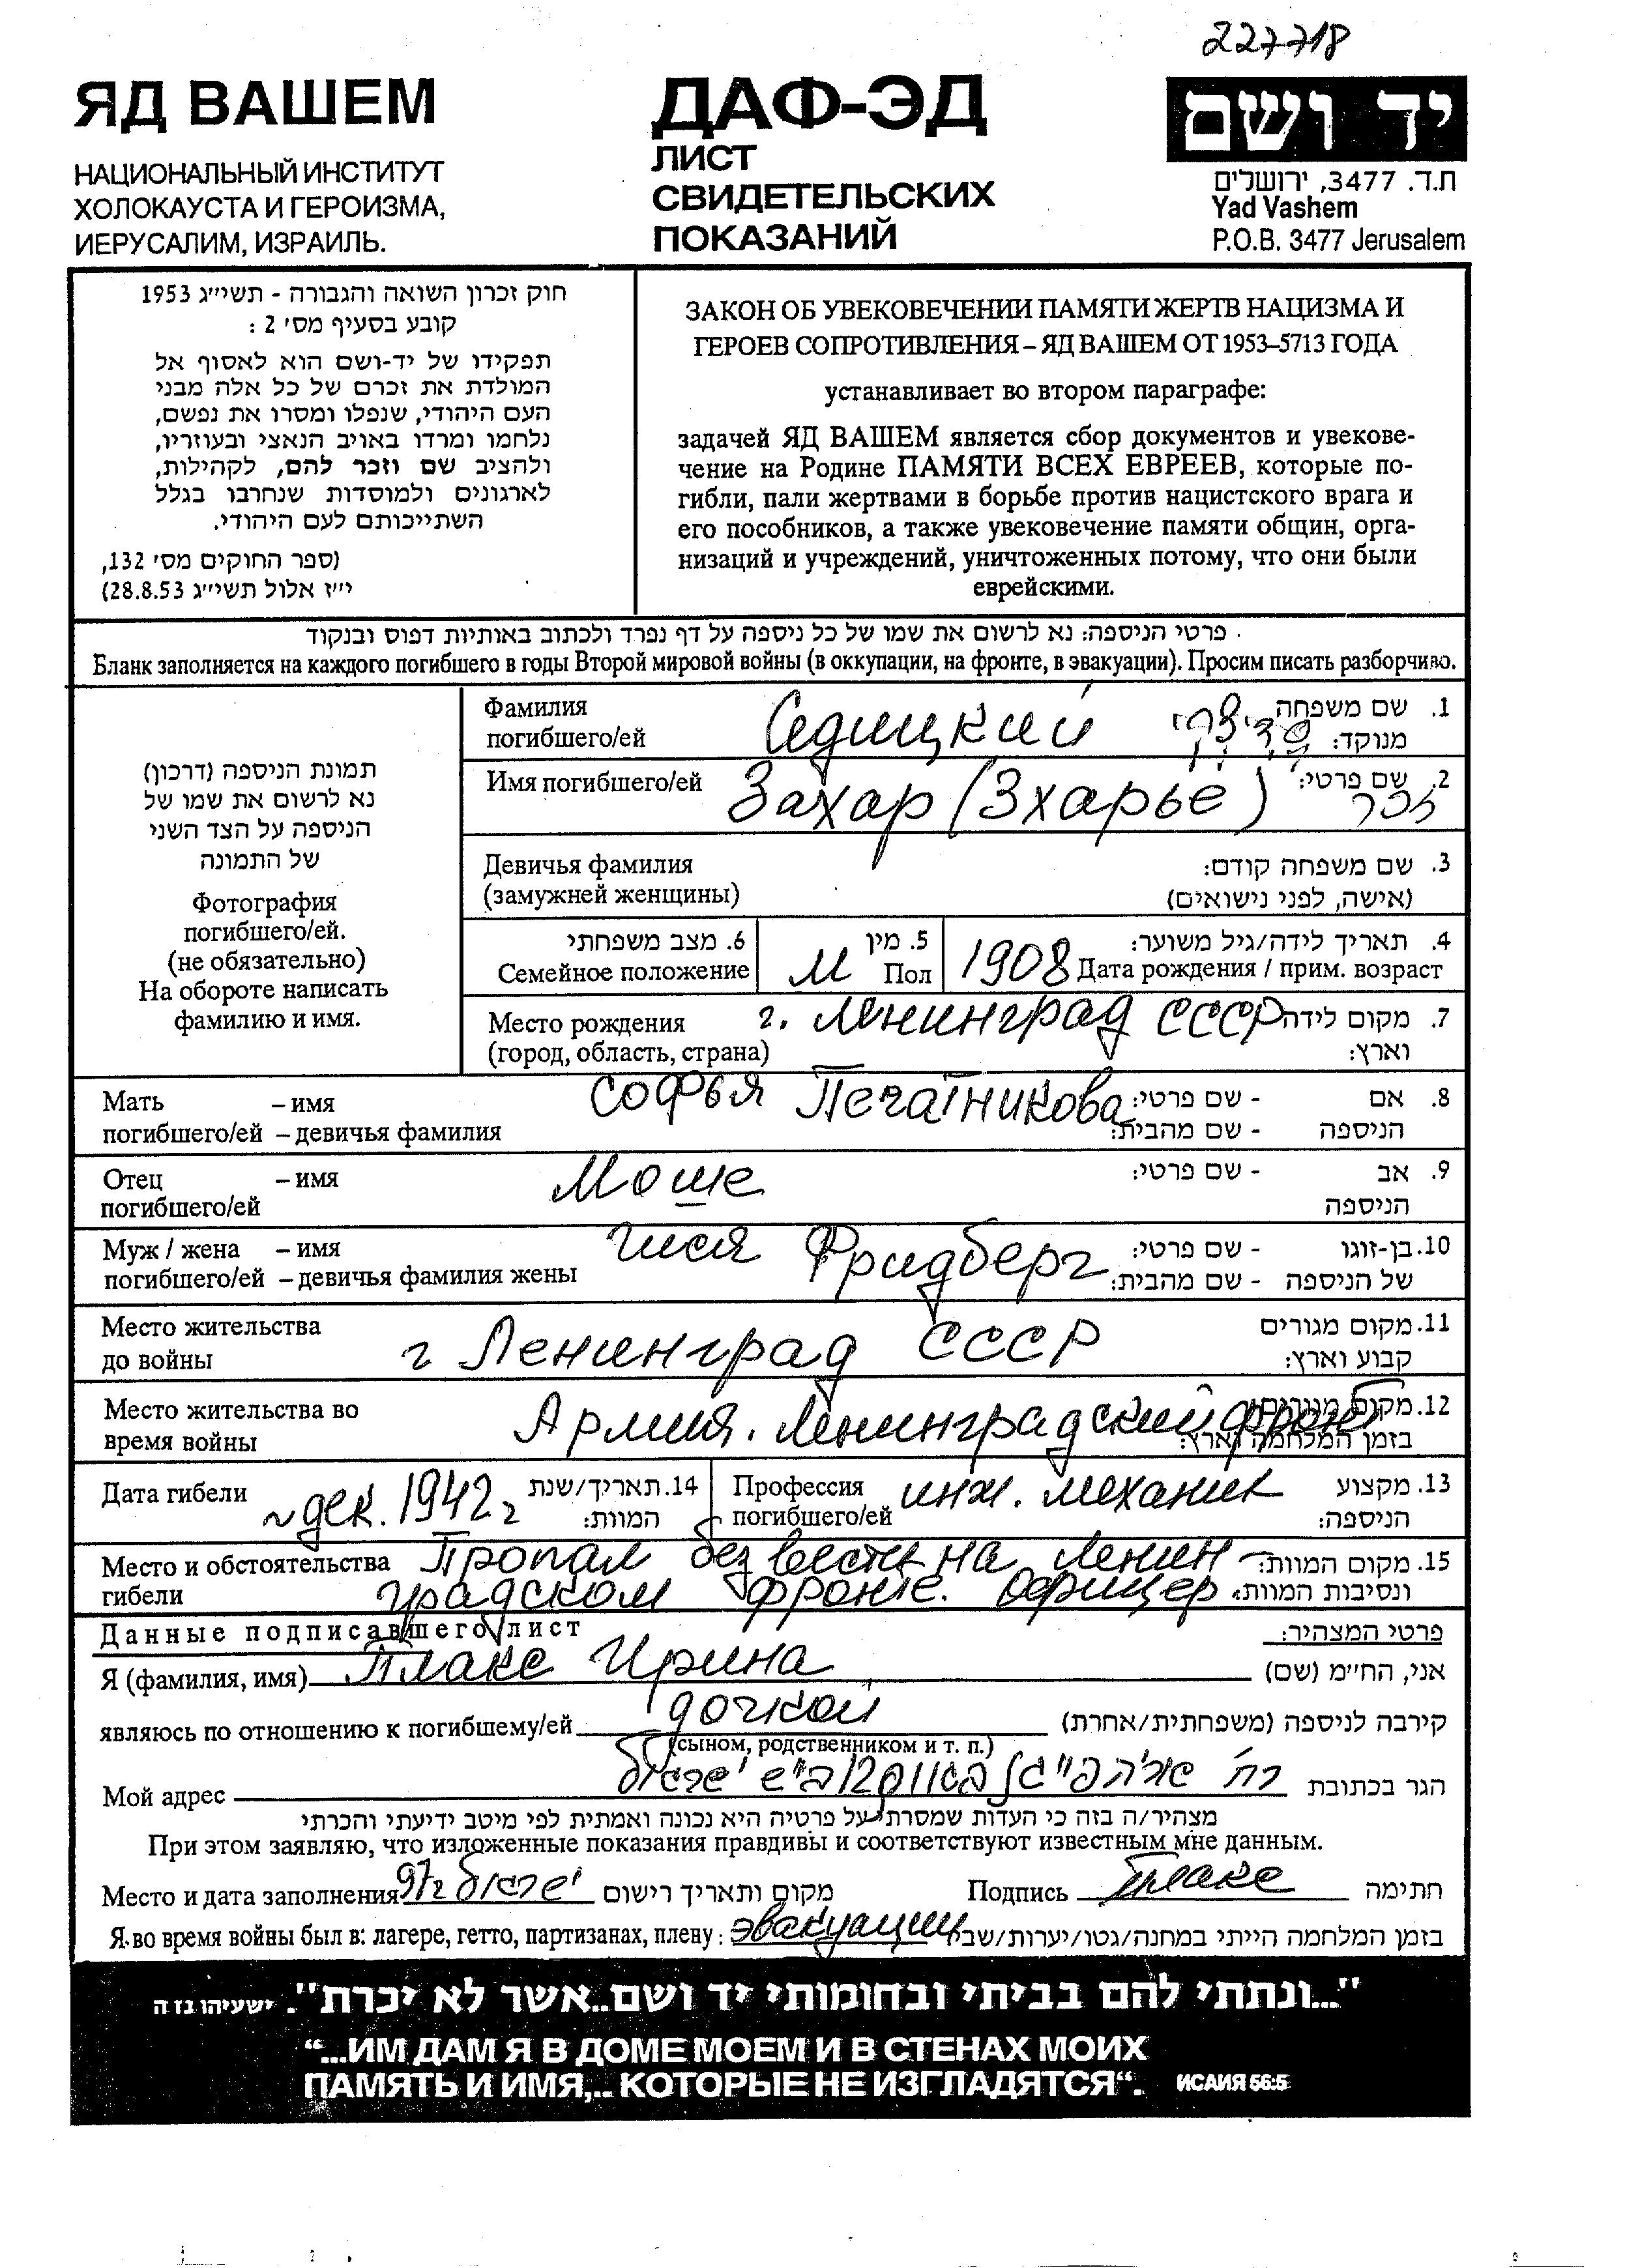 227718
ЯД ВАШЕМ
НАЦИОНАЛЬНЫЙ ИНСТИТУТ
ХОЛОКАУСТА И ГЕРОИЗМА,
ИЕРУСАЛИМ, ИЗРАИЛЬ.
ДАФ-ЭД
ЛИСТ
СВИДЕТЕЛЬСКИХ
ПОКАЗАНИЙ
יד ושם
ת.ד. 3477, ירושלים
Yad Vashem
P.O.B. 3477 Jerusalem
חוק זכרון השואה והגבורה - תשי״ג 1953
קובע בסעיף מס׳ 2 :
תפקידו של יד-ושם הוא לאסוף אל
המולדת את זכרם של כל אלה מבני
העם היהודי, שנפלו ומסרו את נפשם,
נלחמו ומרדו באויב הנאצי ובעוזריו,
ולהציב שם וזכר להם, לקהילות,
לארגונים ולמוסדות שנחרבו בגלל
השתייכותם לעם היהודי.
(ספר החוקים מס׳ 132,
י״ז אלול תשי״ג 28.8.53)
ЗАКОН ОБ УВЕКОВЕЧЕНИИ ПАМЯТИ ЖЕРТВ НАЦИЗМА И
ГЕРОЕВ СОПРОТИВЛЕНИЯ – ЯД ВАШЕМ ОТ 1953–5713 ГОДА
устанавливает во втором параграфе:
задачей ЯД ВАШЕМ является сбор документов и увекове-
чение на Родине ПАМЯТИ ВСЕХ ЕВРЕЕВ, которые по-
гибли, пали жертвами в борьбе против нацистского врага и
его пособников, а также увековечение памяти общин, орга-
низаций и учреждений, уничтоженных потому, что они были
еврейскими.
פרטי הניספה: נא לרשום את שמו של כל ניספה על דף נפרד ולכתוב באותיות דפוס ובנקוד
Бланк заполняется на каждого погибшего в годы Второй мировой войны (в оккупации, на фронте, в эвакуации). Просим писать разборчиво.
תמונת הניספה (דרכון)
נא לרשום את שמו של
הניספה על הצד השני
של התמונה
Фотография
погибшего/ей.
(не обязательно)
На обороте написать
фамилию и имя.
Фамилия Седицкий 1. שם משפחה
погибшего/ей מנוקד:
Имя погибшего/ей Захар (Зхарье) 2. שם פרטי:
זכר
Девичья фамилия 3. שם משפחה קודם:
(замужней женщины) (אישה, לפני נישואים)
6. מצב משפחתי 5. מין 4. תאריך לידה/גיל משוער:
Семейное положение М Пол 1908 Дата рождения / прим. возраст
Место рождения г. Ленинград СССР 7. מקום לידה
(город, область, страна) וארץ:
Мать – имя Софья Печатникова 8. אם - שם פרטי:
погибшего/ей – девичья фамилия הניספה - שם מהבית:
Отец – имя Моше 9. אב - שם פרטי:
погибшего/ей הניספה
Муж / жена – имя Гися Фридберг 10. בן-זוגו - שם פרטי:
погибшего/ей – девичья фамилия жены של הניספה - שם מהבית:
Место жительства г Ленинград СССР 11. מקום מגורים
до войны קבוע וארץ:
Место жительства во Армия. Ленинградский фронт 12. מקום מגורים
время войны בזמן המלחמה וארץ:
Дата гибели ~ дек. 1942 г 14. תאריך/שנת המוות:
Профессия инж. механик 13. מקצוע
погибшего/ей הניספה:
Место и обстоятельства Пропал без вести на Ленин- 15. מקום המוות:
гибели градском фронте. Офицер ונסיבות המוות:
Данные подписавшего лист פרטי המצהיר:
Я (фамилия, имя) Плакс Ирина אני, החי״מ (שם)
являюсь по отношению к погибшему/ей дочкой קירבה לניספה (משפחתית/אחרת)
(сыном, родственником и т. п.)
Мой адрес ישראל הגר בכתובת
מצהיר/ה בזה כי העדות שמסרתי על פרטיה היא נכונה ואמתית לפי מיטב ידיעתי והכרתי
При этом заявляю, что изложенные показания правдивы и соответствуют известным мне данным.
Место и дата заполнения ישראל 97 מקום ותאריך רישום Подпись Плакс חתימה
Я во время войны был в: лагере, гетто, партизанах, плену: эвакуации בזמן המלחמה הייתי במחנה/גטו/יערות/שבי
"...ונתתי להם בביתי ובחומותי יד ושם..אשר לא יכרת". ישעיהו נז ה
“...ИМ ДАМ Я В ДОМЕ МОЕМ И В СТЕНАХ МОИХ
ПАМЯТЬ И ИМЯ,.. КОТОРЫЕ НЕ ИЗГЛАДЯТСЯ“. ИСАИЯ 56:5